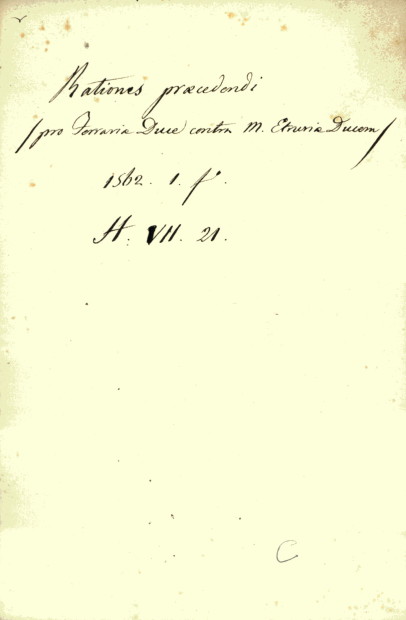 Rationes præcedendi
/pro Ferrariæ Duce contra M. Etruriæ Ducem/
1562. 1. f°.
H. VII. 21.
C